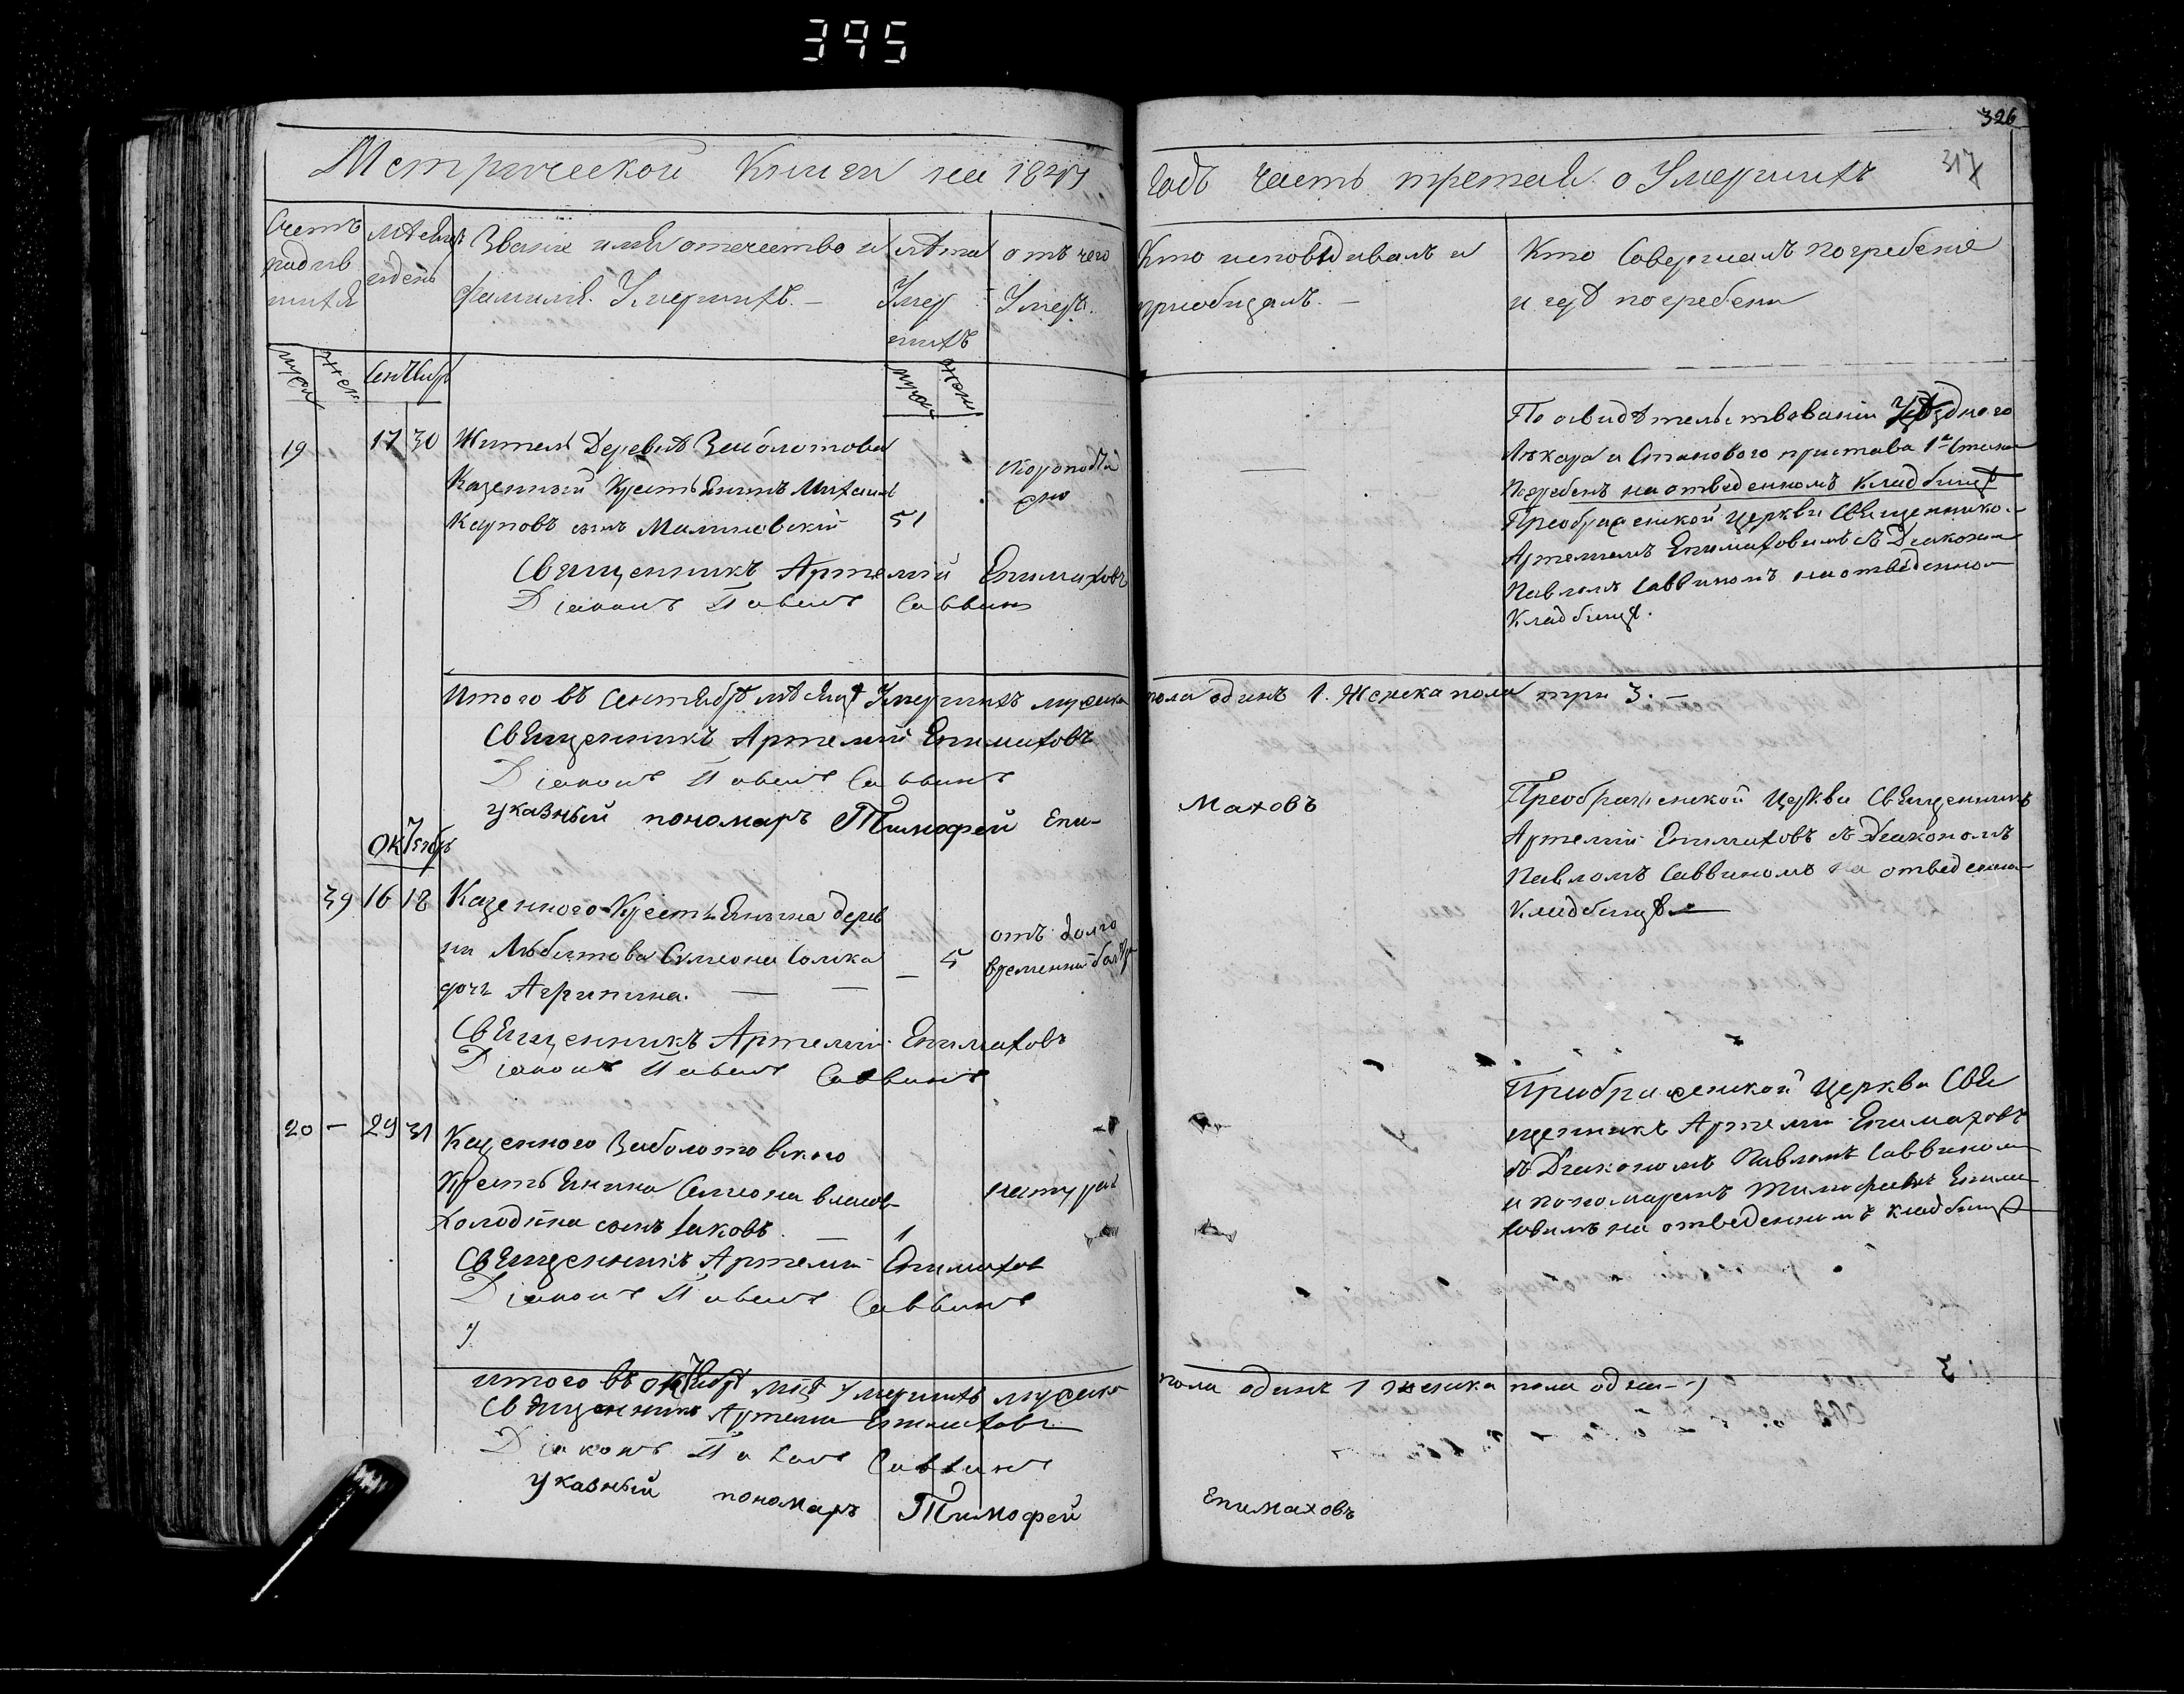 395
326
317
Метрической Книги на 18
Годъ часть третая о Умершихъ
Счетъ
мѣсяцъ
и день
Званіе имя отечество и
фамилія Умершихъ. —
лѣта
Умер
шихъ
отъ чего
Умеръ.
Кто исповѣдивалъ и
приобщалъ. —
Кто Совершалъ погребеніе
и гдѣ погребени
муж
жен.
Сентябрь
муж
жен
19
17 30
Жители Деревнѣ Заболотова
Казенный Крестьянинъ Михаилъ
Карповъ сынъ Малиновскій
51
скоропости
жно
Священникъ Артемій Епимаховъ
Діаконъ Павелъ Саввинъ
По освидѣтельствованіи Уѣздного
Лѣкаря и Станового пристава 1го Стана
Погребенъ на отведенномъ Кладбищѣ
Преображенской Церкви Священнико
Артемиемъ Епимаховимъ съ Диакономъ
Павломъ Саввиномъ на отведенном
Кладбищѣ.
Итого въ Сентябрѣ мѣсяцѣ Умершихъ мужска пола одинъ 1. Женска пола три 3. —
Священникъ Артемій Епимаховъ
Діаконъ Павелъ Саввинъ
указный пономаръ Тимофей Епи-
Маховъ
Октябрь
39 16 18
Казенного Крестьянина дерев
ни Любитова Симеона Сомка
дочь Агрипина. — —
— 5
отъ долго
временни болѣз
Священникъ Артемій Епимаховъ
Діаконъ Павелъ Саввинъ
Преображенской Церкви Священникъ
Артемій Епимаховъ съ Диакономъ
Павломъ Саввиномъ на отведенно
Кладбищѣ —
20 — 29 31
Казенного Заболотовского
Крестьянина Симеона власов
Холодина сынъ Іаковъ. — 1
натурал
Священникъ Артемій Епимахов
Діаконъ Павелъ Саввинъ
Преображенской Церкви Свя
щенникъ Артеми Епимаховъ
съ Диакономъ Павломъ Саввином
и пономаремъ Тимофеемъ Епима
ховимъ на отведенномъ кладбищѣ
итого въ октябрѣ мцѣ умершихъ мужска пола одинъ 1 женска пола одна 1
Священникъ Артеми Епимаховъ
Діаконъ Павелъ Саввинъ
указный пономаръ Тимофей
Епимаховъ